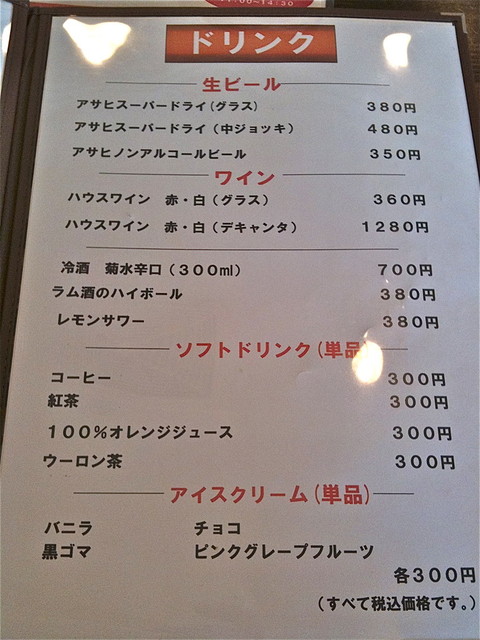 ドリンク
生ビール
アサヒスーパードライ(グラス) 380円
アサヒスーパードライ(中ジョッキ) 480円
アサヒノンアルコールビール 350円
ワイン
ハウスワイン 赤・白(グラス) 360円
ハウスワイン 赤・白(デキャンタ) 1280円
冷酒 菊水辛口(300ml) 700円
ラム酒のハイボール 380円
レモンサワー 380円
ソフトドリンク(単品)
コーヒー 300円
紅茶 300円
100%オレンジジュース 300円
ウーロン茶 300円
アイスクリーム(単品)
バニラ チョコ
黒ゴマ ピンクグレープフルーツ
各300円
(すべて税込価格です。)